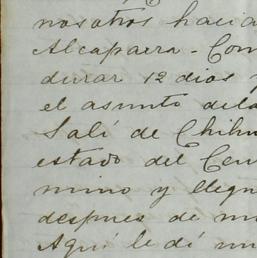 nosotros hacia
Alcaparra - Com
durar 12 dias y
el asunto de la
Salí de Chihu
estado del Cen
mino y llegu
despues de mu
Aquí le dí un